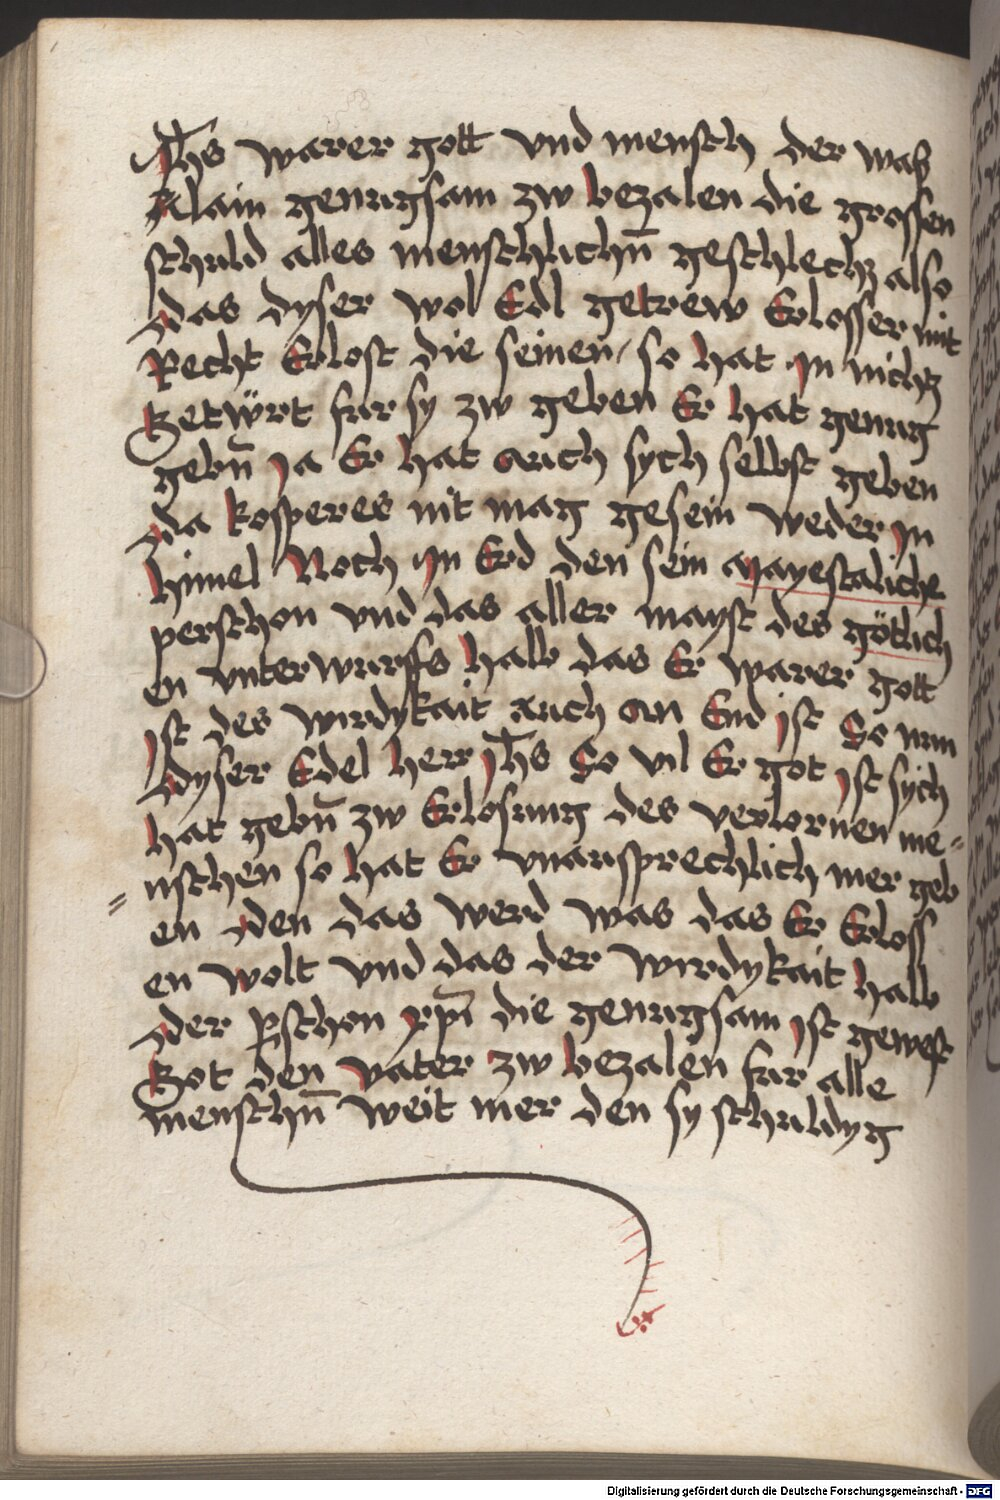 Jh̄s warer gott vnd mensch der was
Alain genugsam zw bezalen die grossen
schuld alles menschlichn̄ geschlechz also
das dyser wol Edl getrew Erlosser mit
Recht Erlost die seinen / so hat in nichtz
Getwürt fur sy zw geben Er hat genug
gebn̄ Ja Er hat auch sych selbst geben
da kosperes nit mag gesein weder in
himel Noch in Erd den sein Mayestaliche
perschon vnd das aller mayst des götlich
en vnterwurffs halb das Er warer gott
ist des wirdykait auch an End ist So nun
dyser Edel herr Jh̄s So vil Er got ist sych
hat gebn̄ zw Erlosung des verlornen me=
=nschen so hat Er vnausprechlich mer geb
en den das werd was das Er Erloss
en wolt vnd das der wirdykait halb
der p̱schon xp̄i die genugsam ist gewest
Got den vater zw bezalen fur alle
menschn̄ weit mer den sy schuldyg
Digitalisierung gefördert durch die Deutsche Forschungsgemeinschaft - DFG